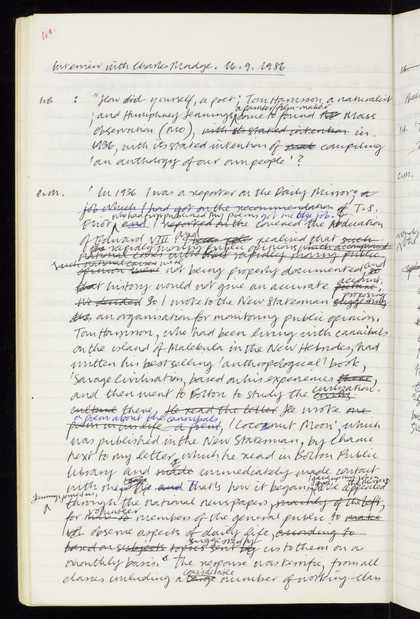 Interview with Charles Madge. 16.9.1986
"How did yourself, a poet; Tom Harrisson, a naturalist
a painter/film-maker
; and Humphrey Jennings, come to found the Mass
Observation (MO), with its stated intention in
1936, with its stated intention of compiling
'an anthology of our own people'?
C.M. 'In 1936 I was a reporter on the Daily Mirror, a
job which I had got on the recommendation of T.S.
who had just published my poems got me the job.
Eliot and I reported on the covered the Abdication
of Edward VIII. I realised that such
rapidly moving public opinions
national crises with their rapidly moving public
opinion went not being properly documented, and
that history would not give an accurate picture. account.
We decided So I wrote to the New Statesman proposing
an organisation for monitoring public opinion.
Tom Harrisson, who had been living with cannibals
on the island of Malekula in the New Hebrides, had
written his best selling 'anthropological' book,
'Savage Civilisation, based on his experiences there,
and then went to Bolton to study the civilization.
culture there. He read the letter He wrote one
a poem about the cannibals
poem in his life 'Coconut Moon', which
was published in the New Statesman, by chance
next to my letter, which he read in Bolton Public
Library and immediately made contact
with me. That's how it began,
Jennings joined us,
through the national newspapers, mainly of the left,
volunteer
for members of the general public to make
observe aspects of daily life, according to
based on subjects suggested by us to them on a
monthly basis. The response was terrific, from all
considerable
classes including a large number of working-class